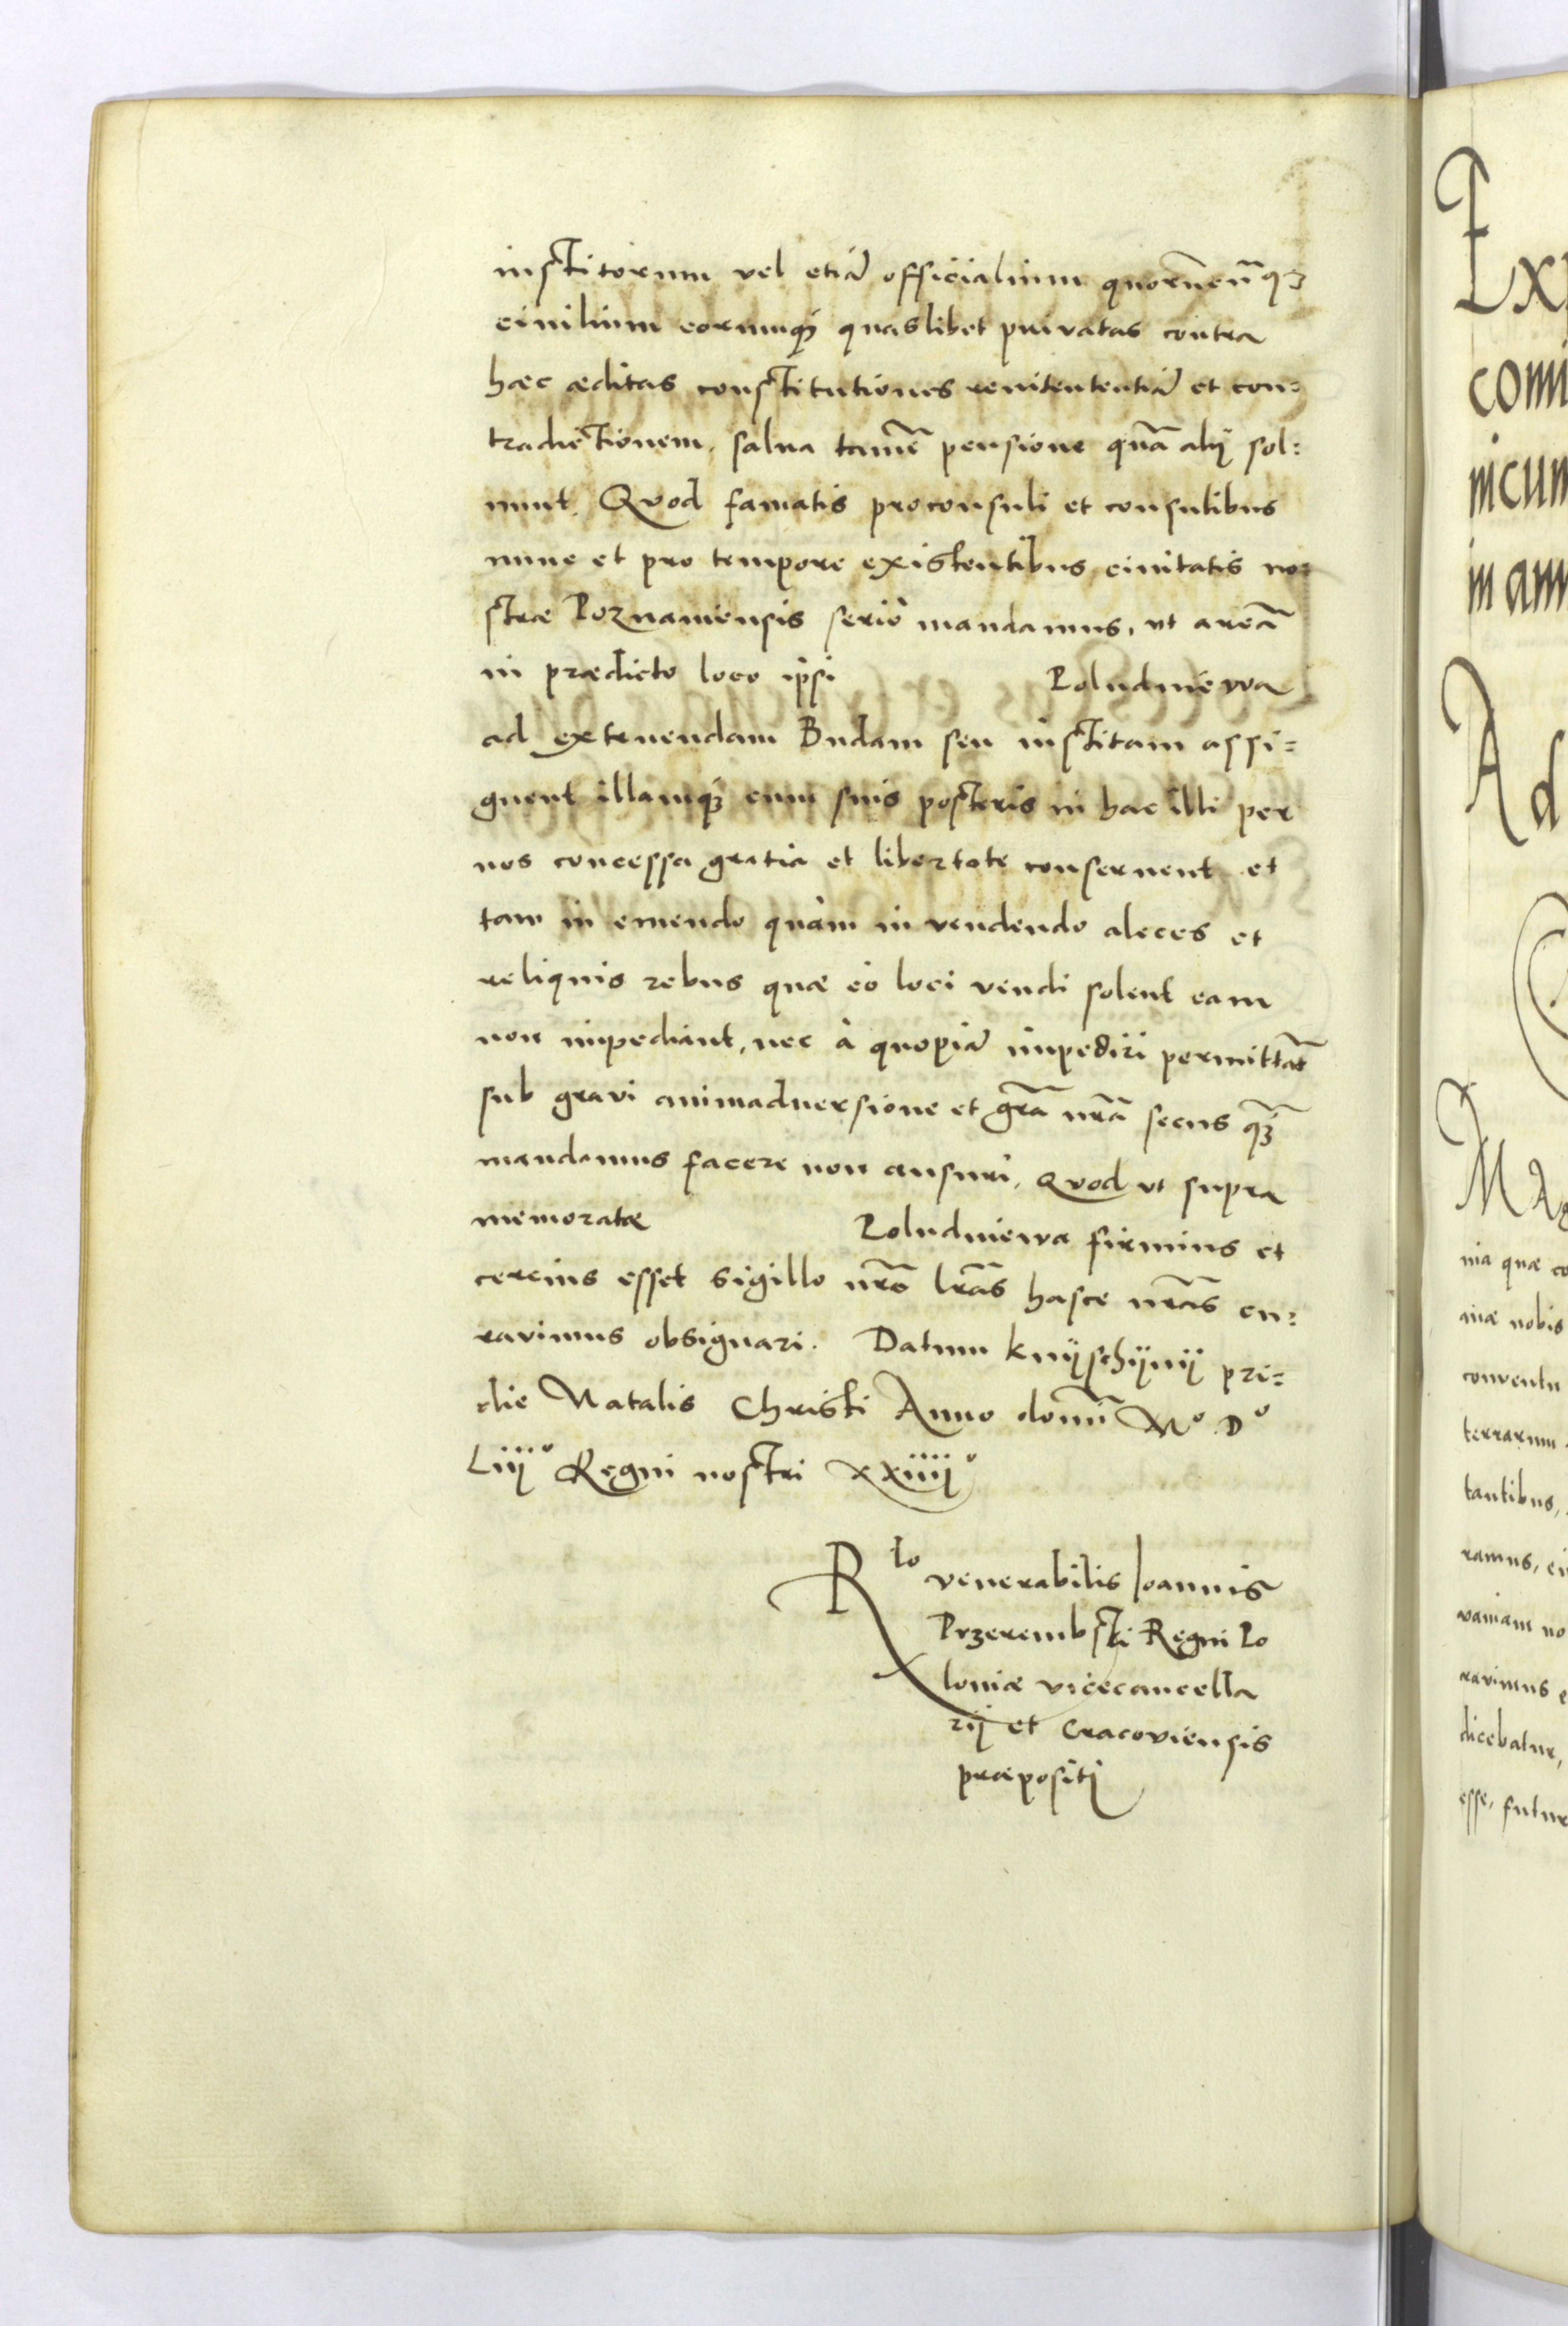 institorum vel etiā officialium quorūcūqȝ
ciuilium eorumqȝ quaslibet priuatas contra
hæc æditas constitutiones renitententiā et con=
tradictionem, salua tamē pensione quā alij sol=
uunt. Quod famatis proconsuli et consulibus
nunc et pro tempore existentibus ciuitatis no=
stræ Poznaniensis serio mandamus, vt areā
in prædicto loco ipsi Poludniewa
ad extruendam Budam seu institam assi=
gnent illamqȝ cum suis posteris in hac illi per
nos concessa gratia et libertate conseruent et
tam in emendo quàm in vendendo aleces et
reliquis rebus quæ eò loci vendi solent eam
non impediant, nec à quopiā impediri permittāt
sub gravi animaduersione et grā nrā secus qȝ̄
mandamus facere non ausuri, Quod vt supra
memoratæ Poludniewa firmius et
cercius esset sigillo nrō lrās hasce nrās cu=
ravimus obsignari. Datum Knijschijnij pri=
die Natalis Christi Anno domī Mº. Dº
Liijº Regni nostri xxiiijº
Rlo venerabilis Ioannis
Przerembski Regni Po
loniæ vicecancella
rij et Cracoviensis
præpositi
Ex
comi
nicum
in ann
Ad
Ma
nia quæ co
aliæ nobis
conventu
terrarum
tantibus,
ramus, ci
vaniam no
ravimus e
dicebatur,
esse, futur